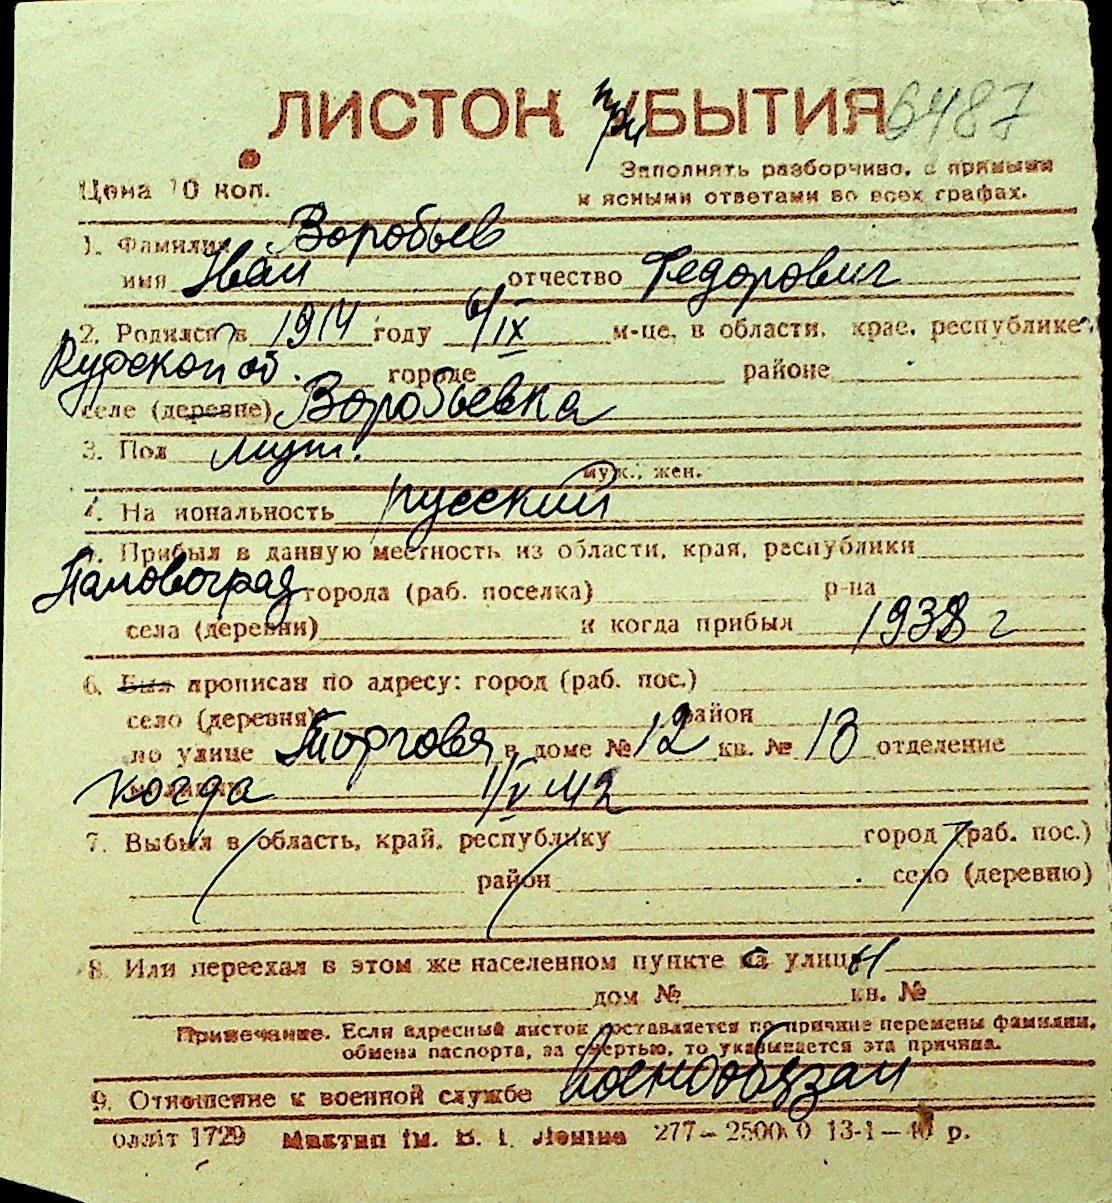 ЛИСТОК при УБЫТИЯ 6487
Заполнять разборчиво, с прямыми
Цена 10 коп.
и ясными ответами во всех графах.
1. Фамилия Воробьев
имя Иван отчество Федорович
2. Родился в 1914 году 6/IX м-це, в области, крае, республике,
Курской об. городе районе
селе (деревне) Воробьевка
3. Пол муж.
муж., жен.
4. На иональность русский
5. Прибыл в данную местность из области, края, республики
города (раб. поселка) р-на
села (деревни) и когда прибыл 1938 г
6. Был прописан по адресу: город (раб. пос.)
село (деревня) район
по улице Торговая в доме № 12 кв. № 13 отделение
когда 1/V 42
7. Выбыл в область, край, республику город (раб. пос.)
район село (деревню)
8. Или переехал в этом же населенном пункте с улицы
дом № кв. №
Примечание. Если адресный листок составляется по причине перемены фамилии,
обмена паспорта, за смертью, то указывается эта причина.
9. Отношение к военной службе Военнообязан
1729 ім. В. І. Леніна 277— 13-1—